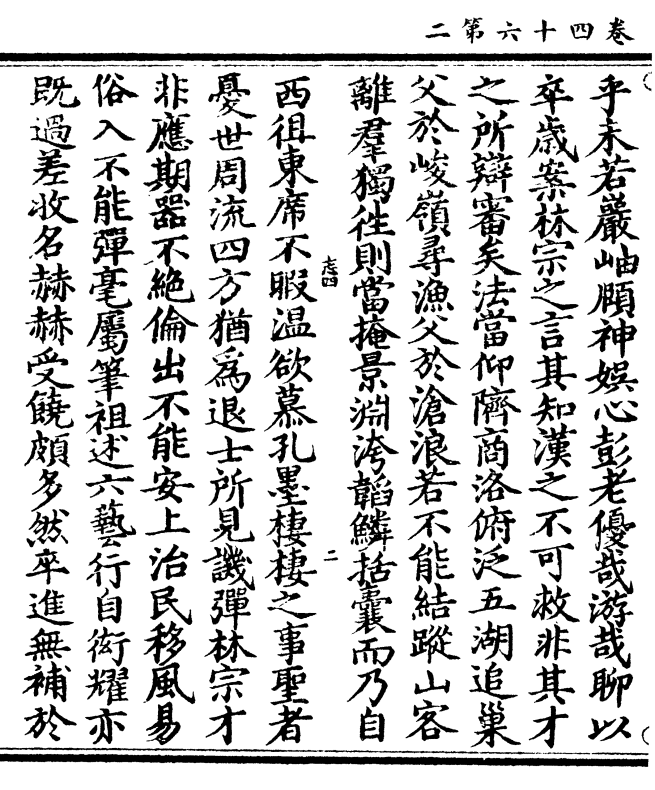 卷四十六第二
乎未若巖岫頤神娛心彭老優哉游哉聊以
卒歲案林宗之言其知漢之不可救非其才
之所辯審矣法當仰隮商洛俯泛五湖追巢
父於峻嶺尋漁父於滄浪若不能結蹤山客
離羣獨徃則當掩景淵洿韜鱗括囊而乃自
西徂東席不暇温欲慕孔墨棲棲之事聖者
憂世周流四方猶爲退士所見譏彈林宗才
非應期器不絶倫出不能安上治民移風易
俗入不能彈毫屬筆祖述六藝行自衒耀亦
既過差收名赫赫受饒頗多然卒進無補於
二